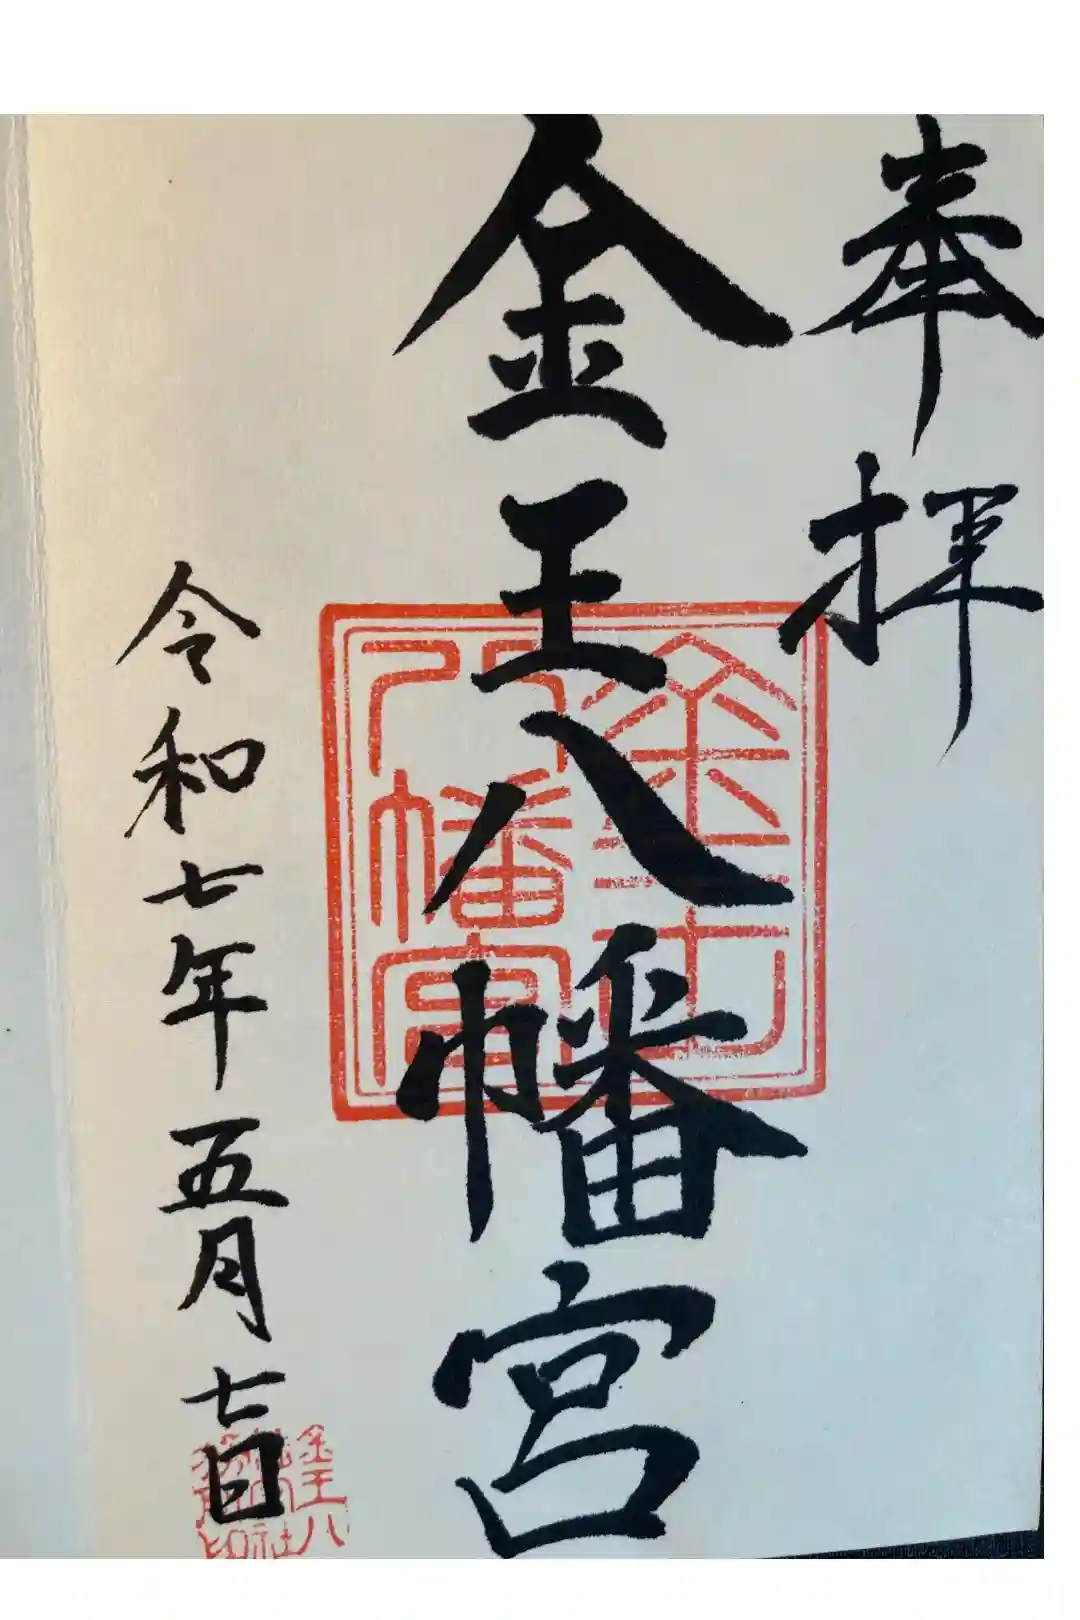 奉拝
金王八幡宮
金王八幡宮
令和七年五月七日
金王八